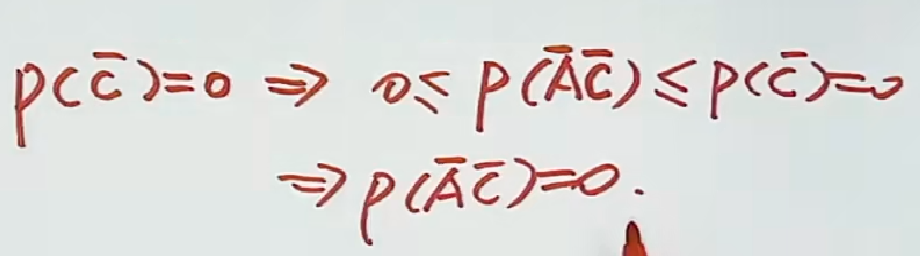 P(C̄)=0 ⇒ 0≤ P(ĀC̄)≤P(C̄)=0
⇒P(ĀC̄)=0.